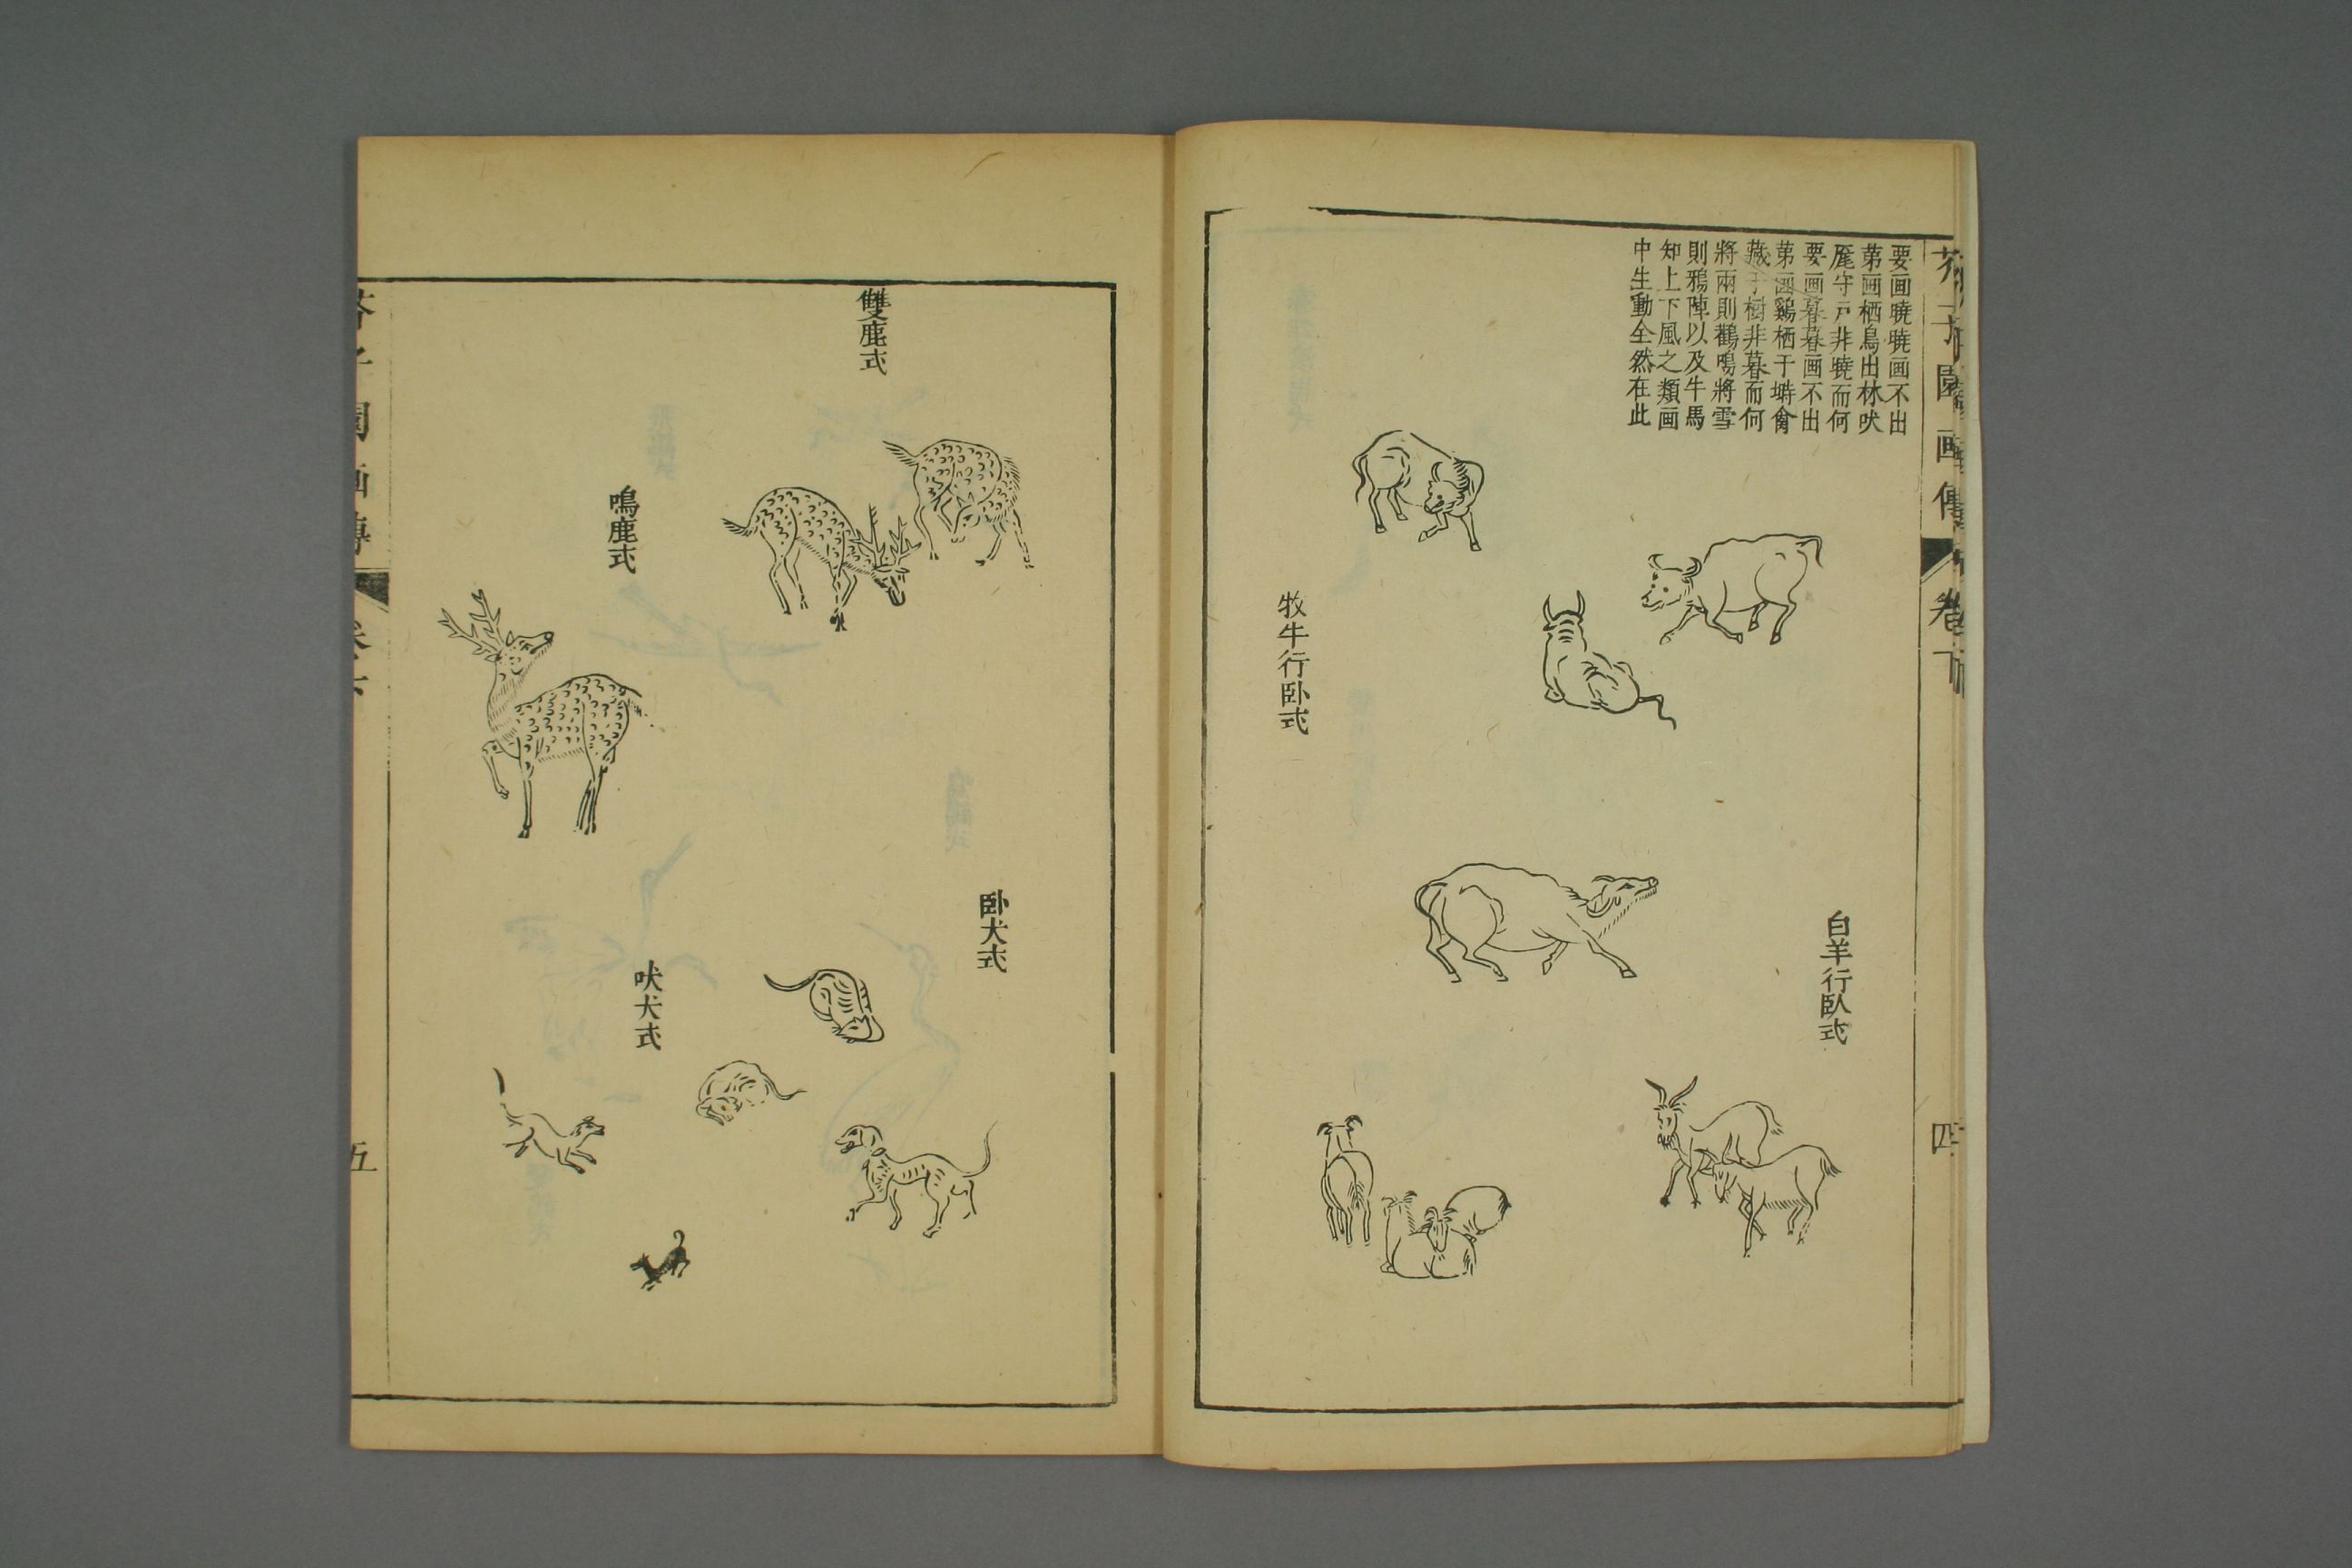 芥子園画傳
卷
四
要画曉曉画不出
苐画栖鳥出林吠
厖守戸非曉而何
要画暮暮画不出
苐画鷄栖于塒禽
藏于樹非暮而何
將雨則鸛鳴將雪
則鴉陣以及牛馬
知上下風之類画
中生動全然在此
白羊行臥式
牧牛行卧式
卧犬式
雙鹿式
吠犬式
鳴鹿式
園
五